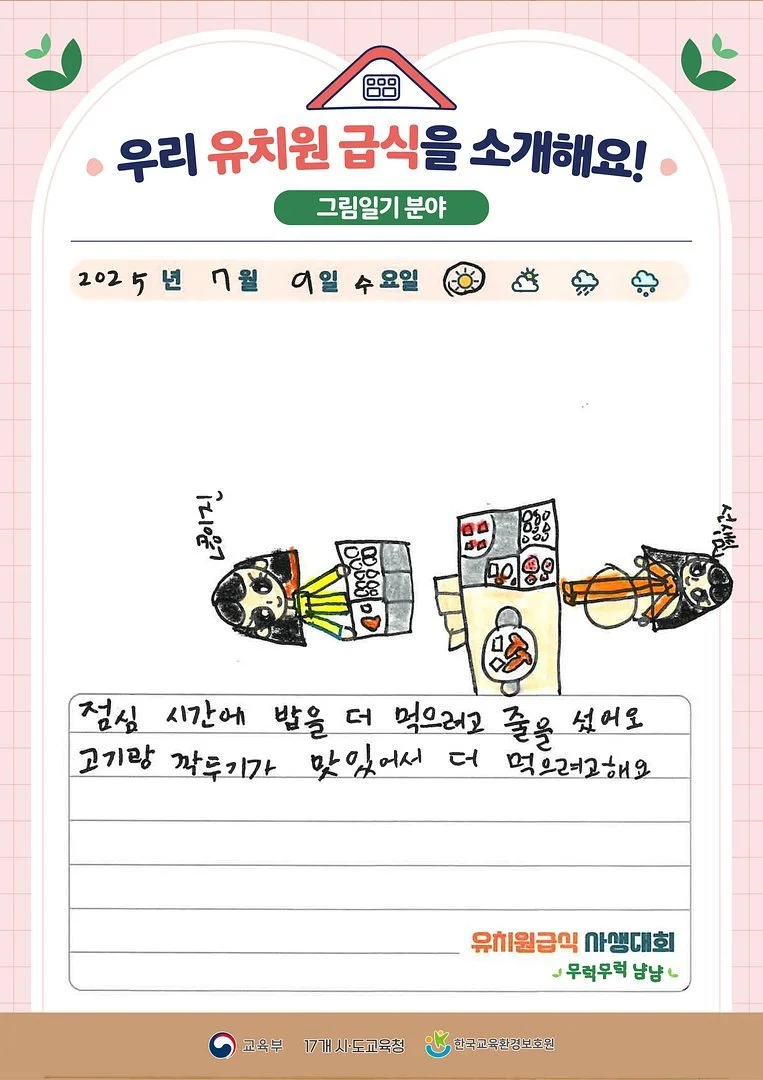 우리 유치원 급식을 소개해요!
그림일기 분야
2025년 7월 9일 수요일
콩이진
선생님
점심 시간에 밥을 더 먹으려고 줄을 섰어요
고기랑 깍두기가 맛있어서 더 먹으려고해요
유치원급식 사생대회
무럭무럭 냠냠
교육부 17개 시·도교육청 한국교육환경보호원